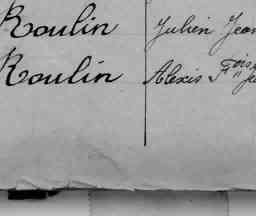 Roulin Julien Jean
Roulin Alexis Fois